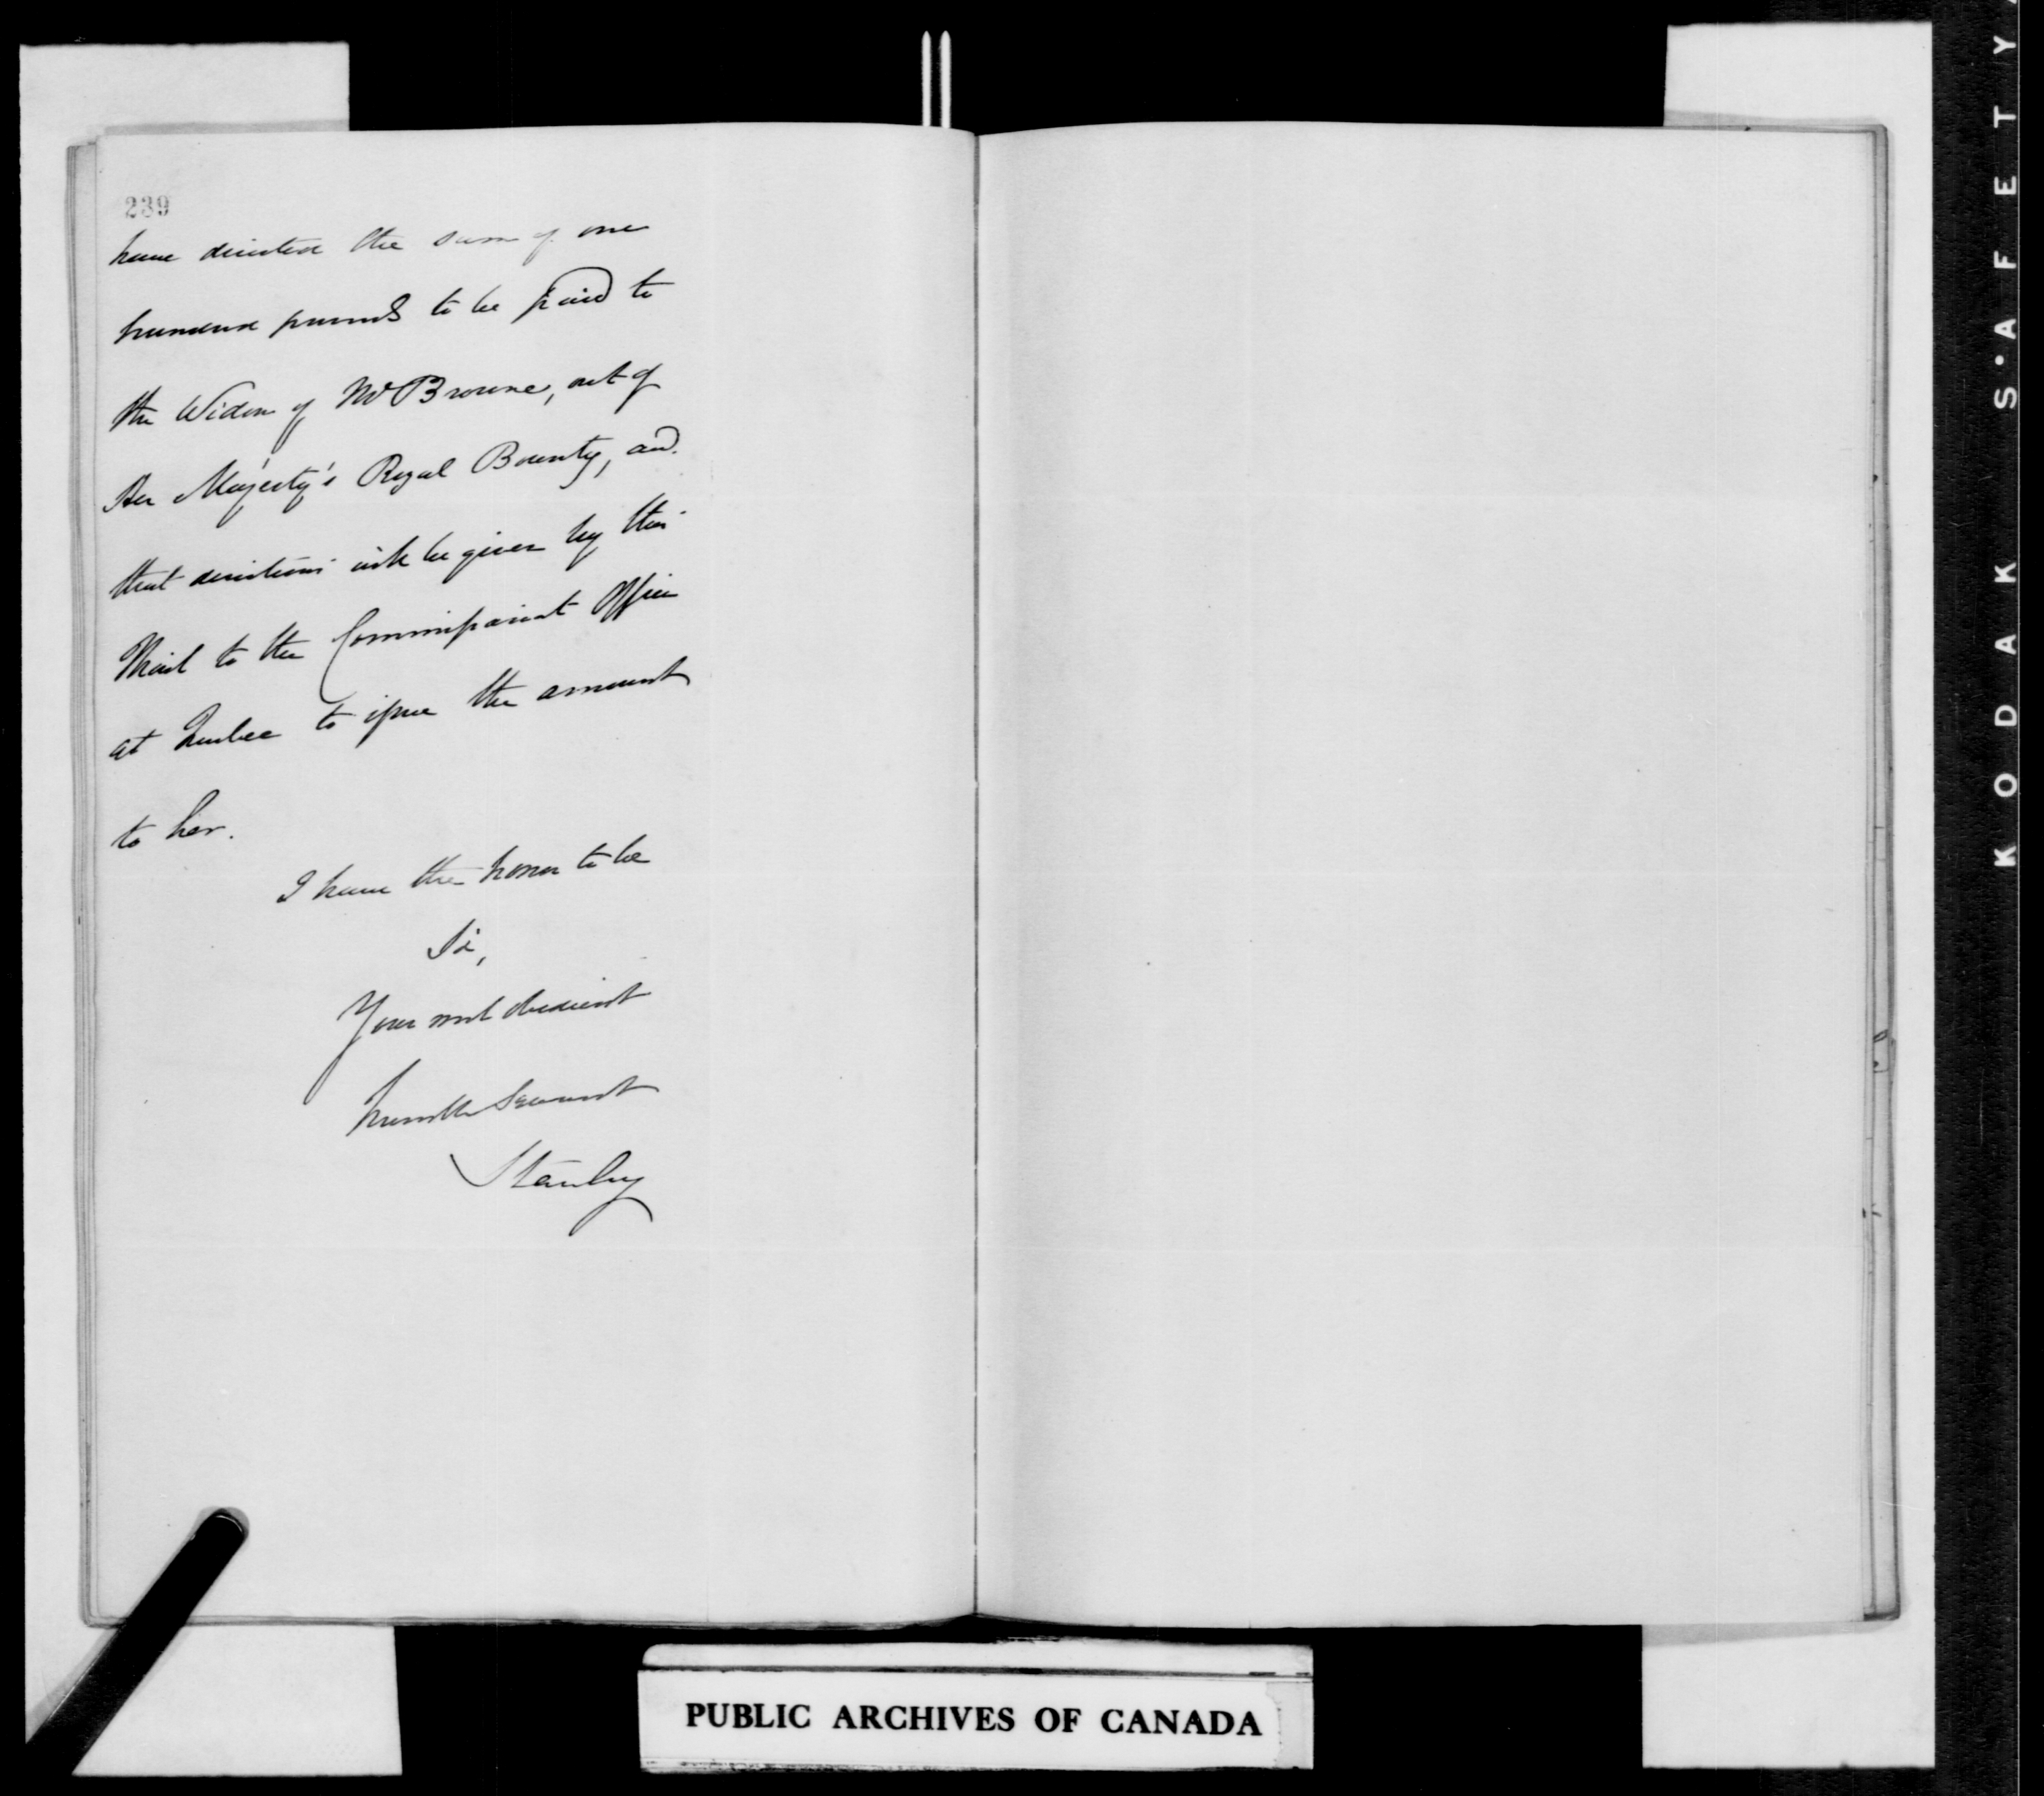 239
have directed the sum of one
hundred pounds to be paid to
the Widow of Mr Browne, out of
Her Majesty's Royal Bounty, and
that directions will be given by this
Mail to the Commissariat Officer
at Quebec to issue the amount
to her.
I have the honor to be
Sir,
Your most obedient
humble Servant
Stanley
PUBLIC ARCHIVES OF CANADA
KODAK S·AFETY